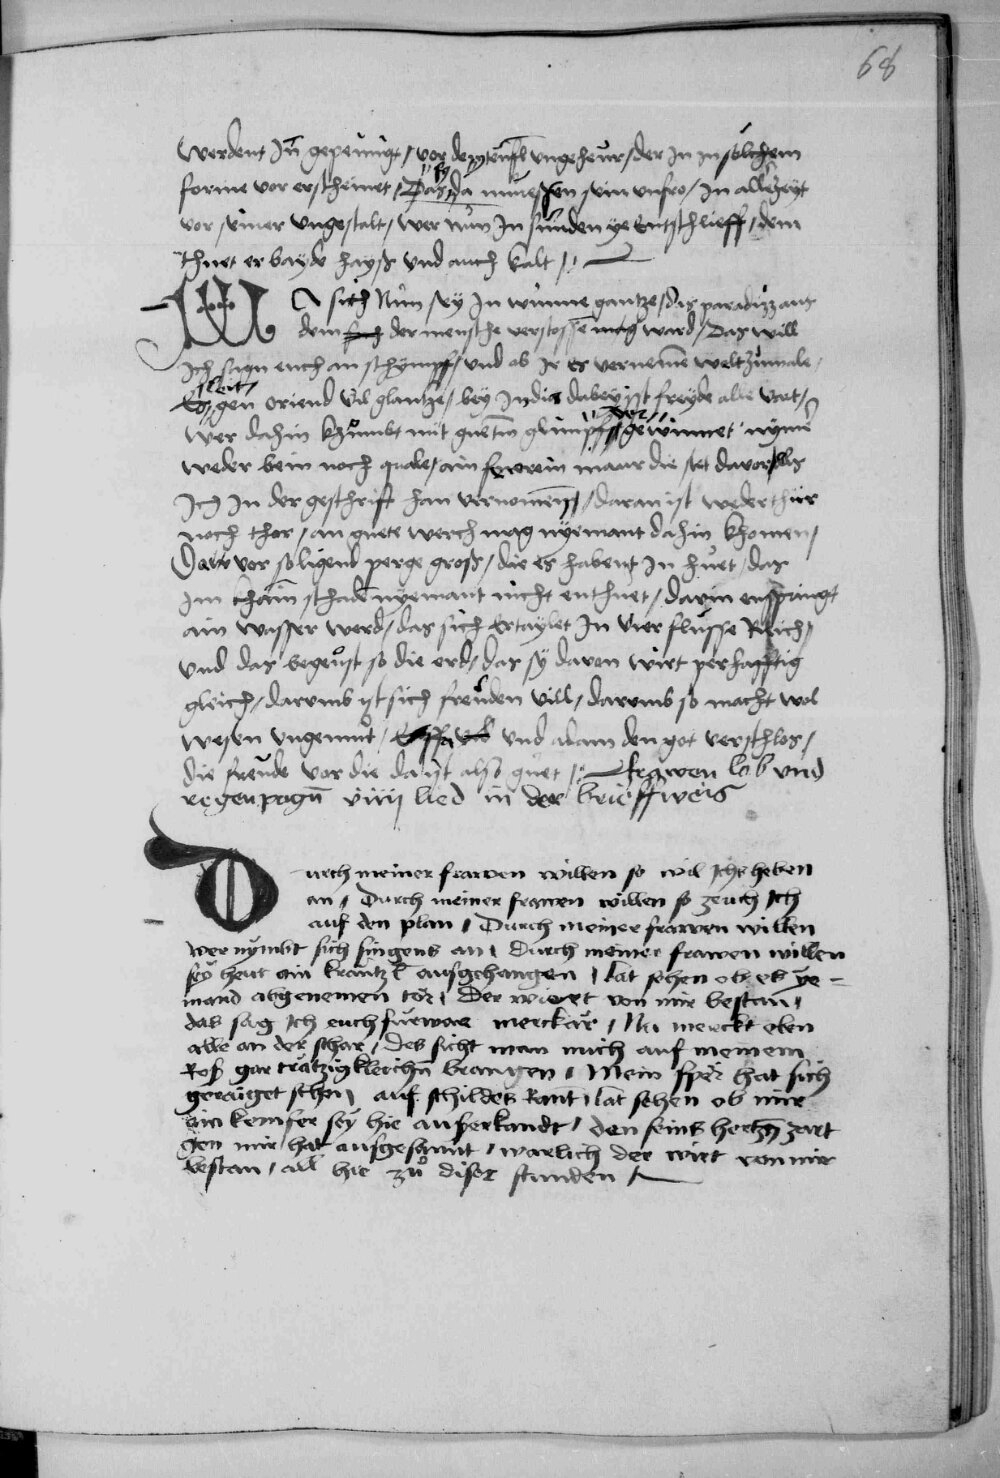 68
werdent In gepeinigt / vor dem teufl ungeheur / der In in sölchem
forme vor erscheinet / Das sy da muessen sein unfro / In allezeyt
vor seiner ungestalt / wer nun In sunden ye entschlieff / dem
thuet er bayde hayß und auch kalt /
WA sich Nun sey In wunne gantze / das paradiz aus
dem der mensche verstossen ward / Das will
Ich sagn euch an schympf / und ob Ir es vernemen welt zumale /
Es leit gen oriend vil glantze / bey India dabey ist freyde alle vart /
wer dahin khumbt mit guetem glimpff / der gewinnet nymer
weder bein noch quale / ain fewrein maur die stet davor / als
Ich In der geschrift han vernomen / daran ist weder thür
noch thor / an guete werch mag nyemant dahin khomen /
Da vor so ligend perge groß / die es habent In huet / das
im chain schade nyemant nicht enthuet / darin enspringt
ain wasser werd / das sich ertaylet In vier flusse Reich /
und das begeust so die erd / das sy daren wirt perhafftig
gleich / darumb ist sich freuden vill / darumb so macht wol
wesen ungemut / und adam den got verschlos /
die freude vor die da ist also guet / frawen lob und
regenpogn viiij lied in der brieffweis
Durch meiner frawen willen so wil Ichs heben
an / Durch meiner frawen willen so zeuch Ich
auf den plan / Durch meiner frawen willen
wer nymbt sich singens an / durch meiner frawen willen
sey heut ain krantzl aufgehangen / lat sehen ob es ye-
mand abgenemen tör / Der wiert von mir bestan /
das sag Ich euch furwar merckar / Nu merckt eben
alle an der schar / des sicht man mich auf meinem
Roß gar trutzigkleichn brangen / Mein sper hat sich
geraiget schon / auf schildes Rant / lat sehen ob mir
ain kemfer sey hie auserkandt / den seins hertzn zart
gen mir hat ausgesannt / warlich der wirt von mir
bestan / all hie zu diser stunden /